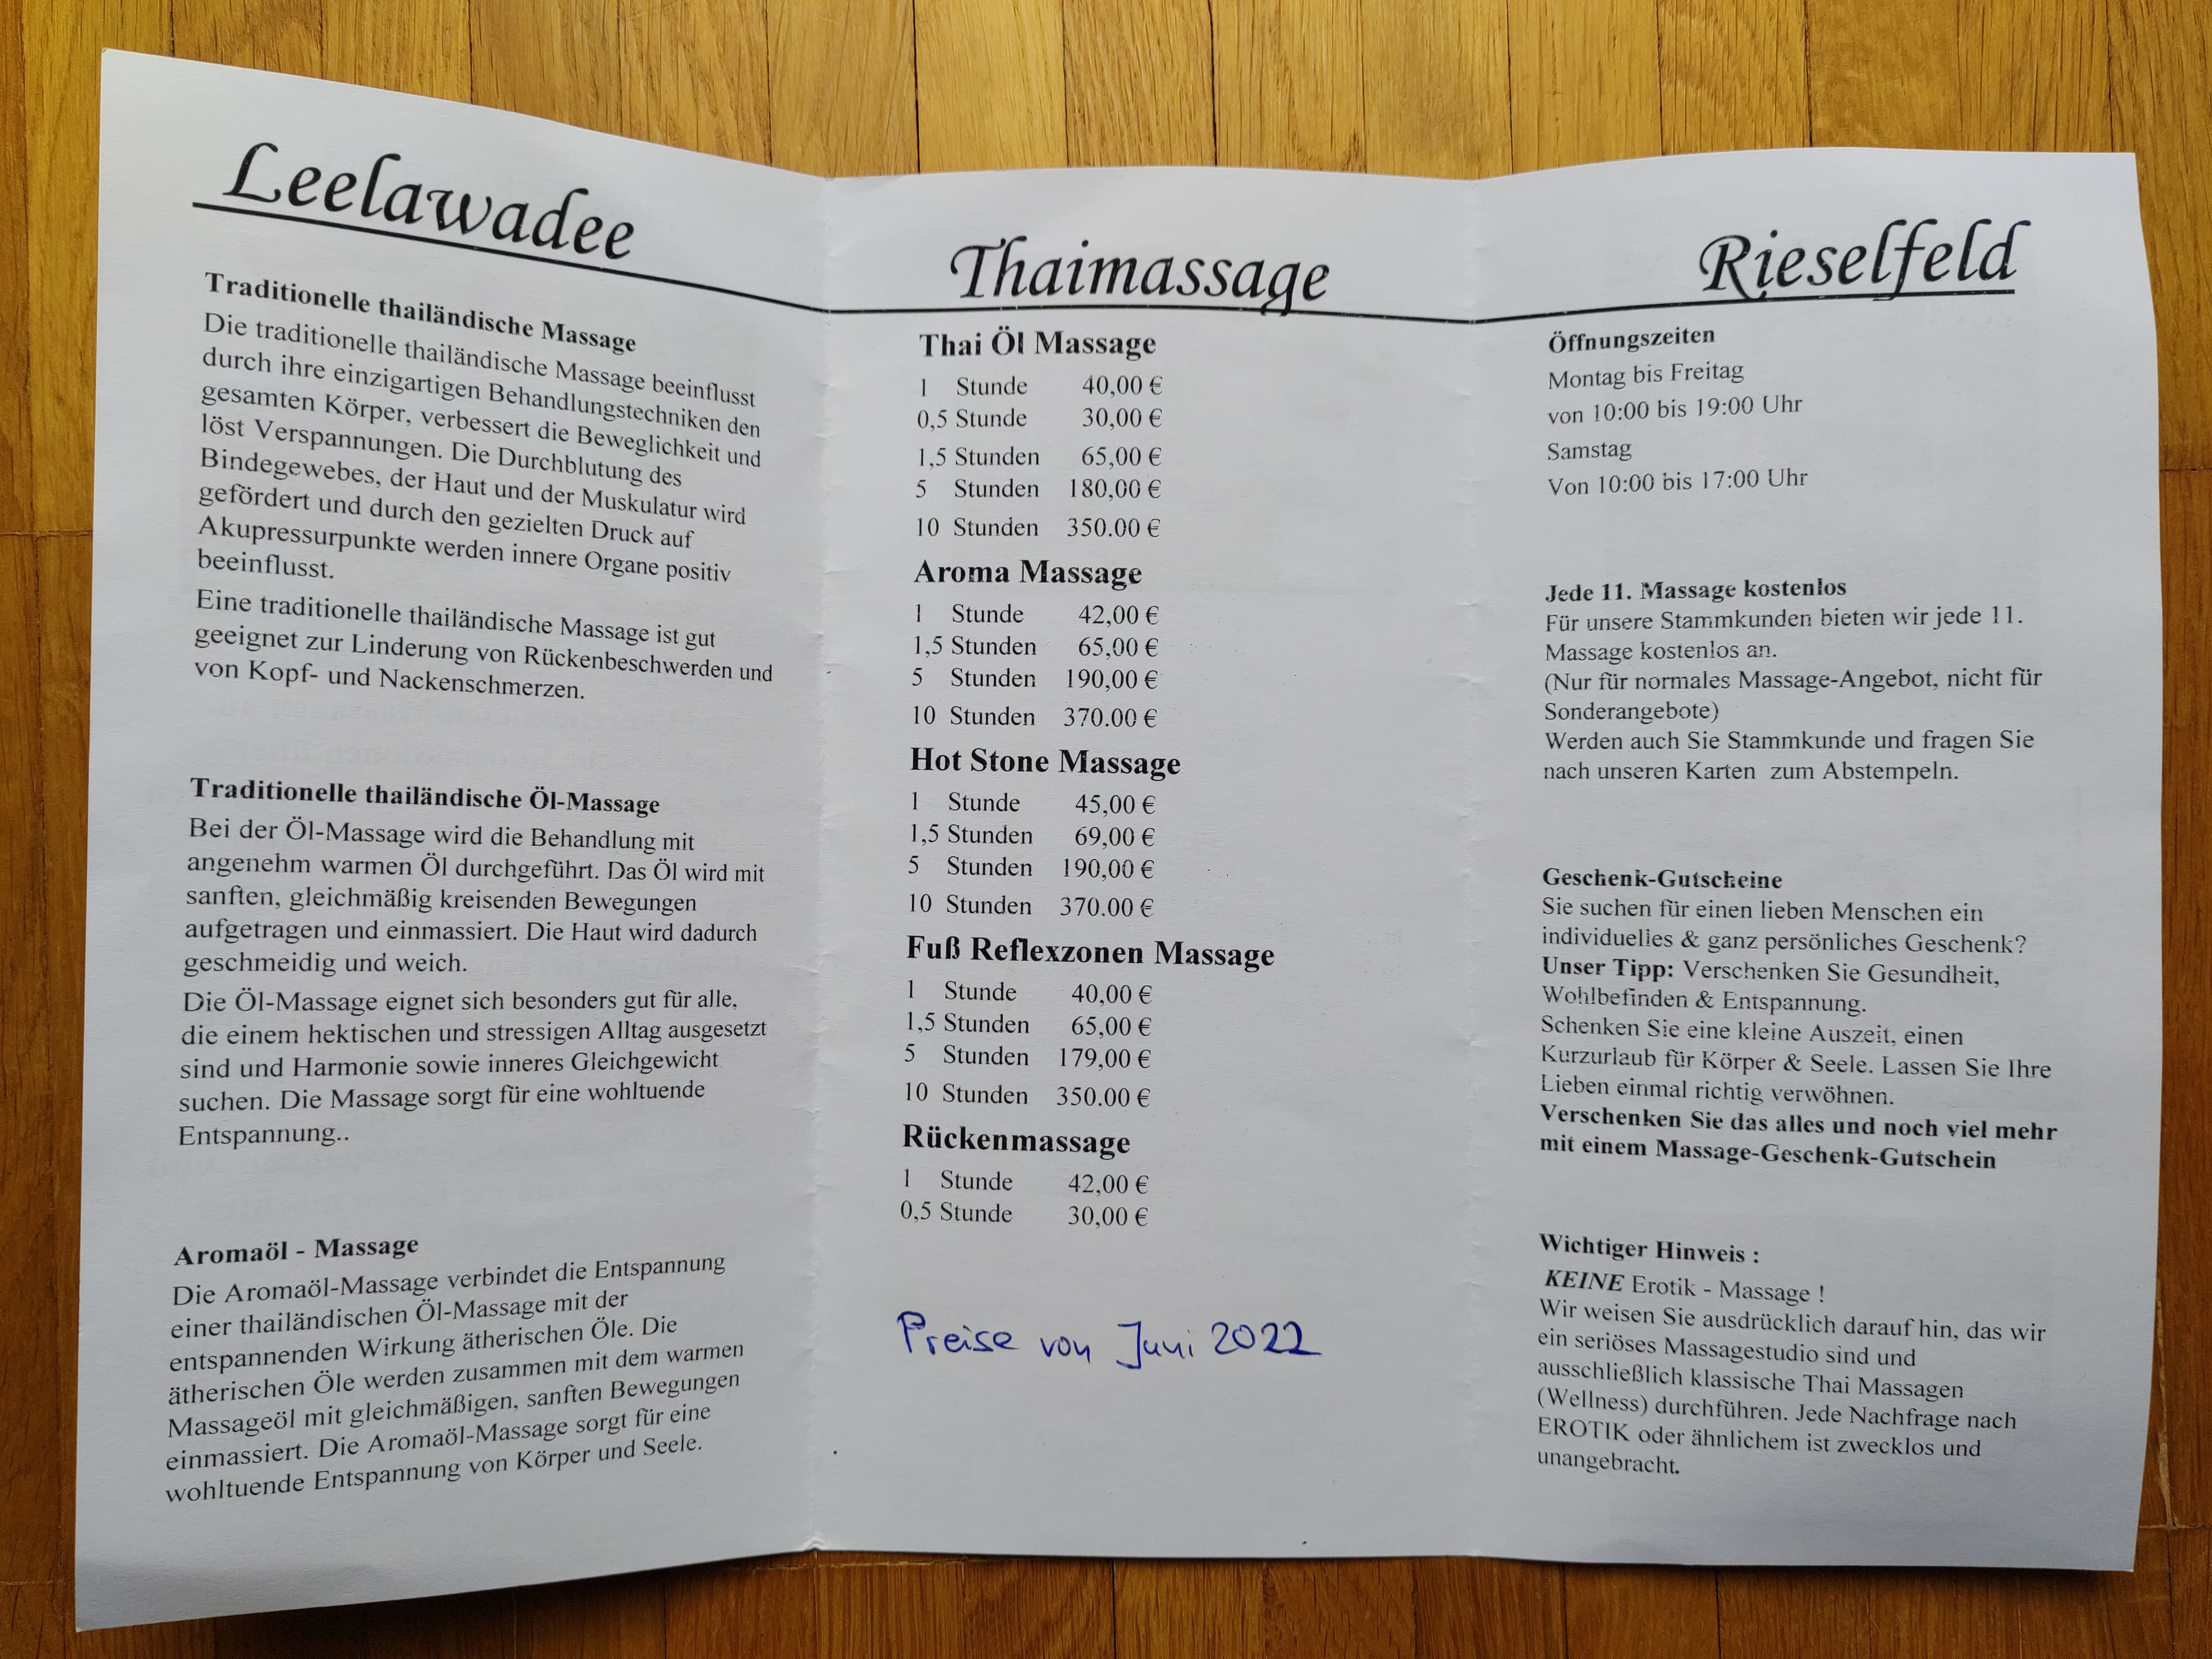 Leelawadee
Thaimassage
Rieselfeld
Traditionelle thailändische Massage
Die traditionelle thailändische Massage beeinflusst
durch ihre einzigartigen Behandlungstechniken den
gesamten Körper, verbessert die Beweglichkeit und
löst Verspannungen. Die Durchblutung des
Bindegewebes, der Haut und der Muskulatur wird
gefördert und durch den gezielten Druck auf
Akupressurpunkte werden innere Organe positiv
beeinflusst.
Eine traditionelle thailändische Massage ist gut
geeignet zur Linderung von Rückenbeschwerden und
von Kopf- und Nackenschmerzen.
Traditionelle thailändische Öl-Massage
Bei der Öl-Massage wird die Behandlung mit
angenehm warmen Öl durchgeführt. Das Öl wird mit
sanften, gleichmäßig kreisenden Bewegungen
aufgetragen und einmassiert. Die Haut wird dadurch
geschmeidig und weich.
Die Öl-Massage eignet sich besonders gut für alle,
die einem hektischen und stressigen Alltag ausgesetzt
sind und Harmonie sowie inneres Gleichgewicht
suchen. Die Massage sorgt für eine wohltuende
Entspannung..
Aromaöl - Massage
Die Aromaöl-Massage verbindet die Entspannung
einer thailändischen Öl-Massage mit der
entspannenden Wirkung ätherischen Öle. Die
ätherischen Öle werden zusammen mit dem warmen
Massageöl mit gleichmäßigen, sanften Bewegungen
einmassiert. Die Aromaöl-Massage sorgt für eine
wohltuende Entspannung von Körper und Seele.
Thai Öl Massage
1 Stunde 40,00 €
0,5 Stunde 30,00 €
1,5 Stunden 65,00 €
5 Stunden 180,00 €
10 Stunden 350.00 €
Aroma Massage
1 Stunde 42,00 €
1,5 Stunden 65,00 €
5 Stunden 190,00 €
10 Stunden 370.00 €
Hot Stone Massage
1 Stunde 45,00 €
1,5 Stunden 69,00 €
5 Stunden 190,00 €
10 Stunden 370.00 €
Fuß Reflexzonen Massage
1 Stunde 40,00 €
1,5 Stunden 65,00 €
5 Stunden 179,00 €
10 Stunden 350.00 €
Rückenmassage
1 Stunde 42,00 €
0,5 Stunde 30,00 €
Preise von Juni 2022
Öffnungszeiten
Montag bis Freitag
von 10:00 bis 19:00 Uhr
Samstag
Von 10:00 bis 17:00 Uhr
Jede 11. Massage kostenlos
Für unsere Stammkunden bieten wir jede 11.
Massage kostenlos an.
(Nur für normales Massage-Angebot, nicht für
Sonderangebote)
Werden auch Sie Stammkunde und fragen Sie
nach unseren Karten zum Abstempeln.
Geschenk-Gutscheine
Sie suchen für einen lieben Menschen ein
individuelles & ganz persönliches Geschenk?
Unser Tipp: Verschenken Sie Gesundheit,
Wohlbefinden & Entspannung.
Schenken Sie eine kleine Auszeit, einen
Kurzurlaub für Körper & Seele. Lassen Sie Ihre
Lieben einmal richtig verwöhnen.
Verschenken Sie das alles und noch viel mehr
mit einem Massage-Geschenk-Gutschein
Wichtiger Hinweis :
KEINE Erotik - Massage !
Wir weisen Sie ausdrücklich darauf hin, das wir
ein seriöses Massagestudio sind und
ausschließlich klassische Thai Massagen
(Wellness) durchführen. Jede Nachfrage nach
EROTIK oder ähnlichem ist zwecklos und
unangebracht.